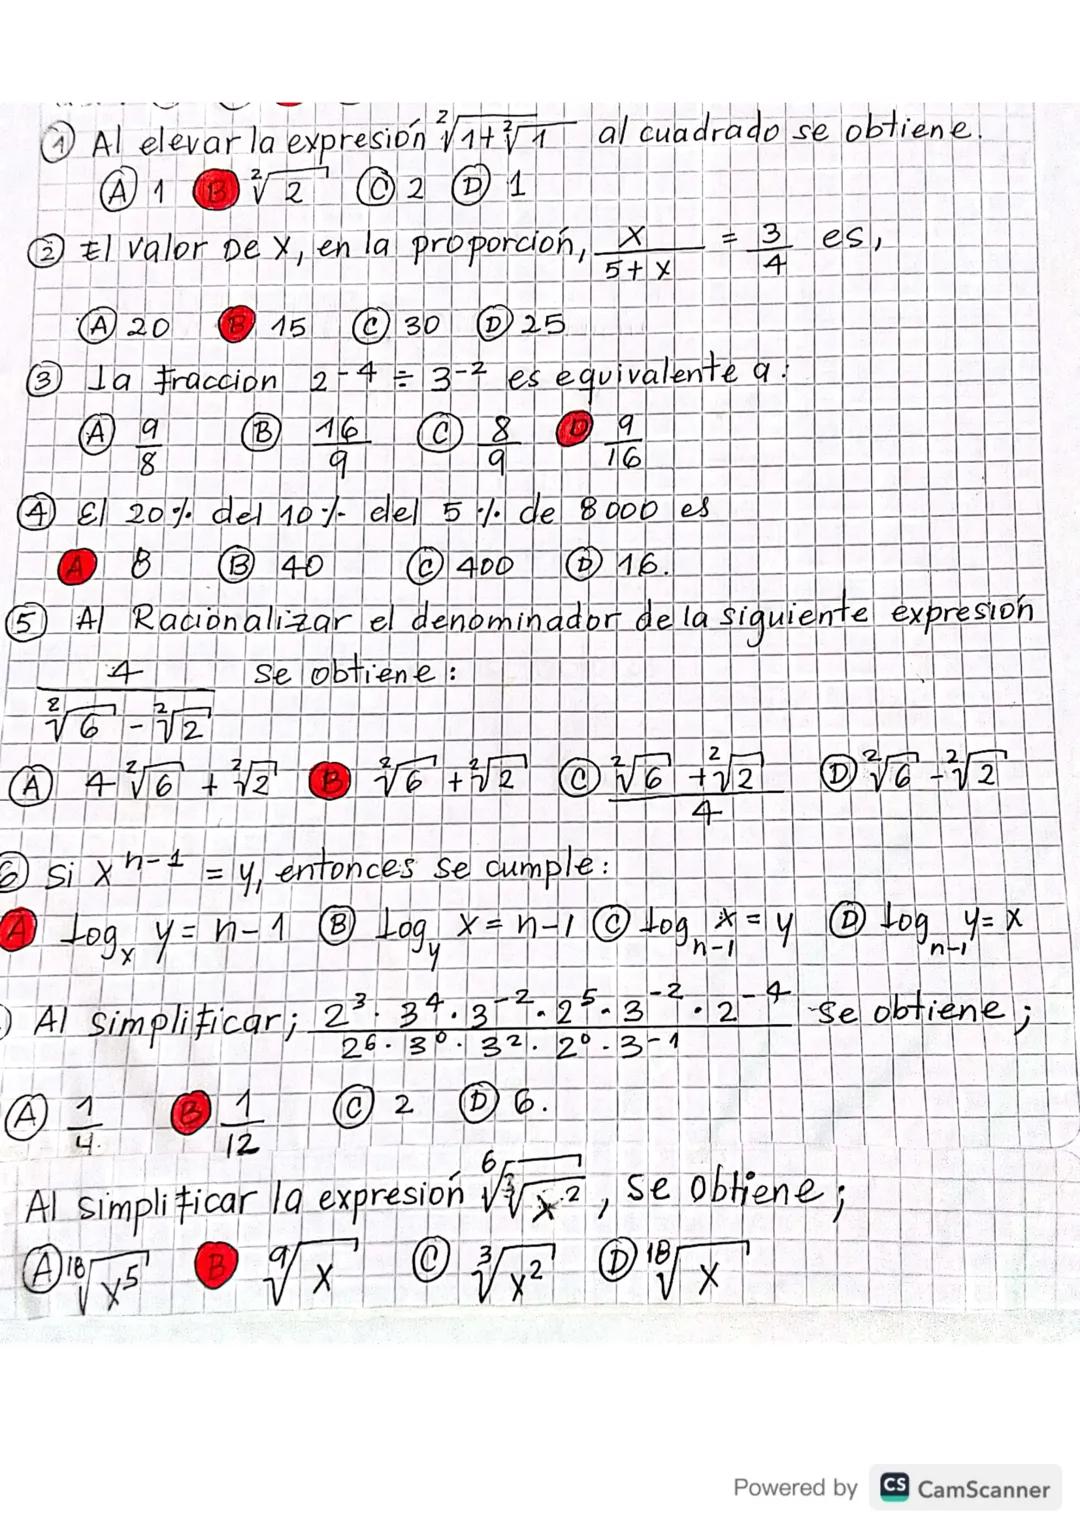 ① Al elevar la expresión ²√1+²√1 al cuadrado se obtiene.
Ⓐ 1 Ⓑ ²√2 Ⓒ 2 Ⓓ 1
② El valor De X, en la proporción, x/(5+x) = 3/4 es,
Ⓐ 20 Ⓑ 15 Ⓒ 30 Ⓓ 25
③ La fraccion 2⁻⁴ ÷ 3⁻² es equivalente a:
Ⓐ 9/8 Ⓑ 16/9 Ⓒ 8/9 Ⓓ 9/16
④ El 20% del 10% del 5% de 8000 es
Ⓐ 8 Ⓑ 40 Ⓒ 400 Ⓓ 16.
⑤ Al Racionalizar el denominador de la siguiente expresión
4/(²√6 - ²√2) se obtiene:
Ⓐ 4 ²√6 + ²√2 Ⓑ ²√6 + ²√2 Ⓒ (²√6 + ²√2)/4 Ⓓ ²√6 - ²√2
⑥ Si xⁿ⁻¹ = y, entonces se cumple:
Ⓐ Logₓ y = n-1 Ⓑ Log_y x = n-1 Ⓒ Log_n-1 x = y Ⓓ Log_n-1 y = x
Al simplificar; (2³·3⁴·3⁻²·2⁵·3⁻²·2⁻⁴)/(2⁶·3⁰·3²·2⁰·3⁻¹) se obtiene;
Ⓐ 1/4. Ⓑ 1/12 Ⓒ 2 Ⓓ 6.
Al simplificar la expresión ⁶√³√x², se obtiene;
Ⓐ ¹⁸√x⁵ Ⓑ ⁹√x Ⓒ ³√x² Ⓓ ¹⁸√x
Powered by CS CamScanner